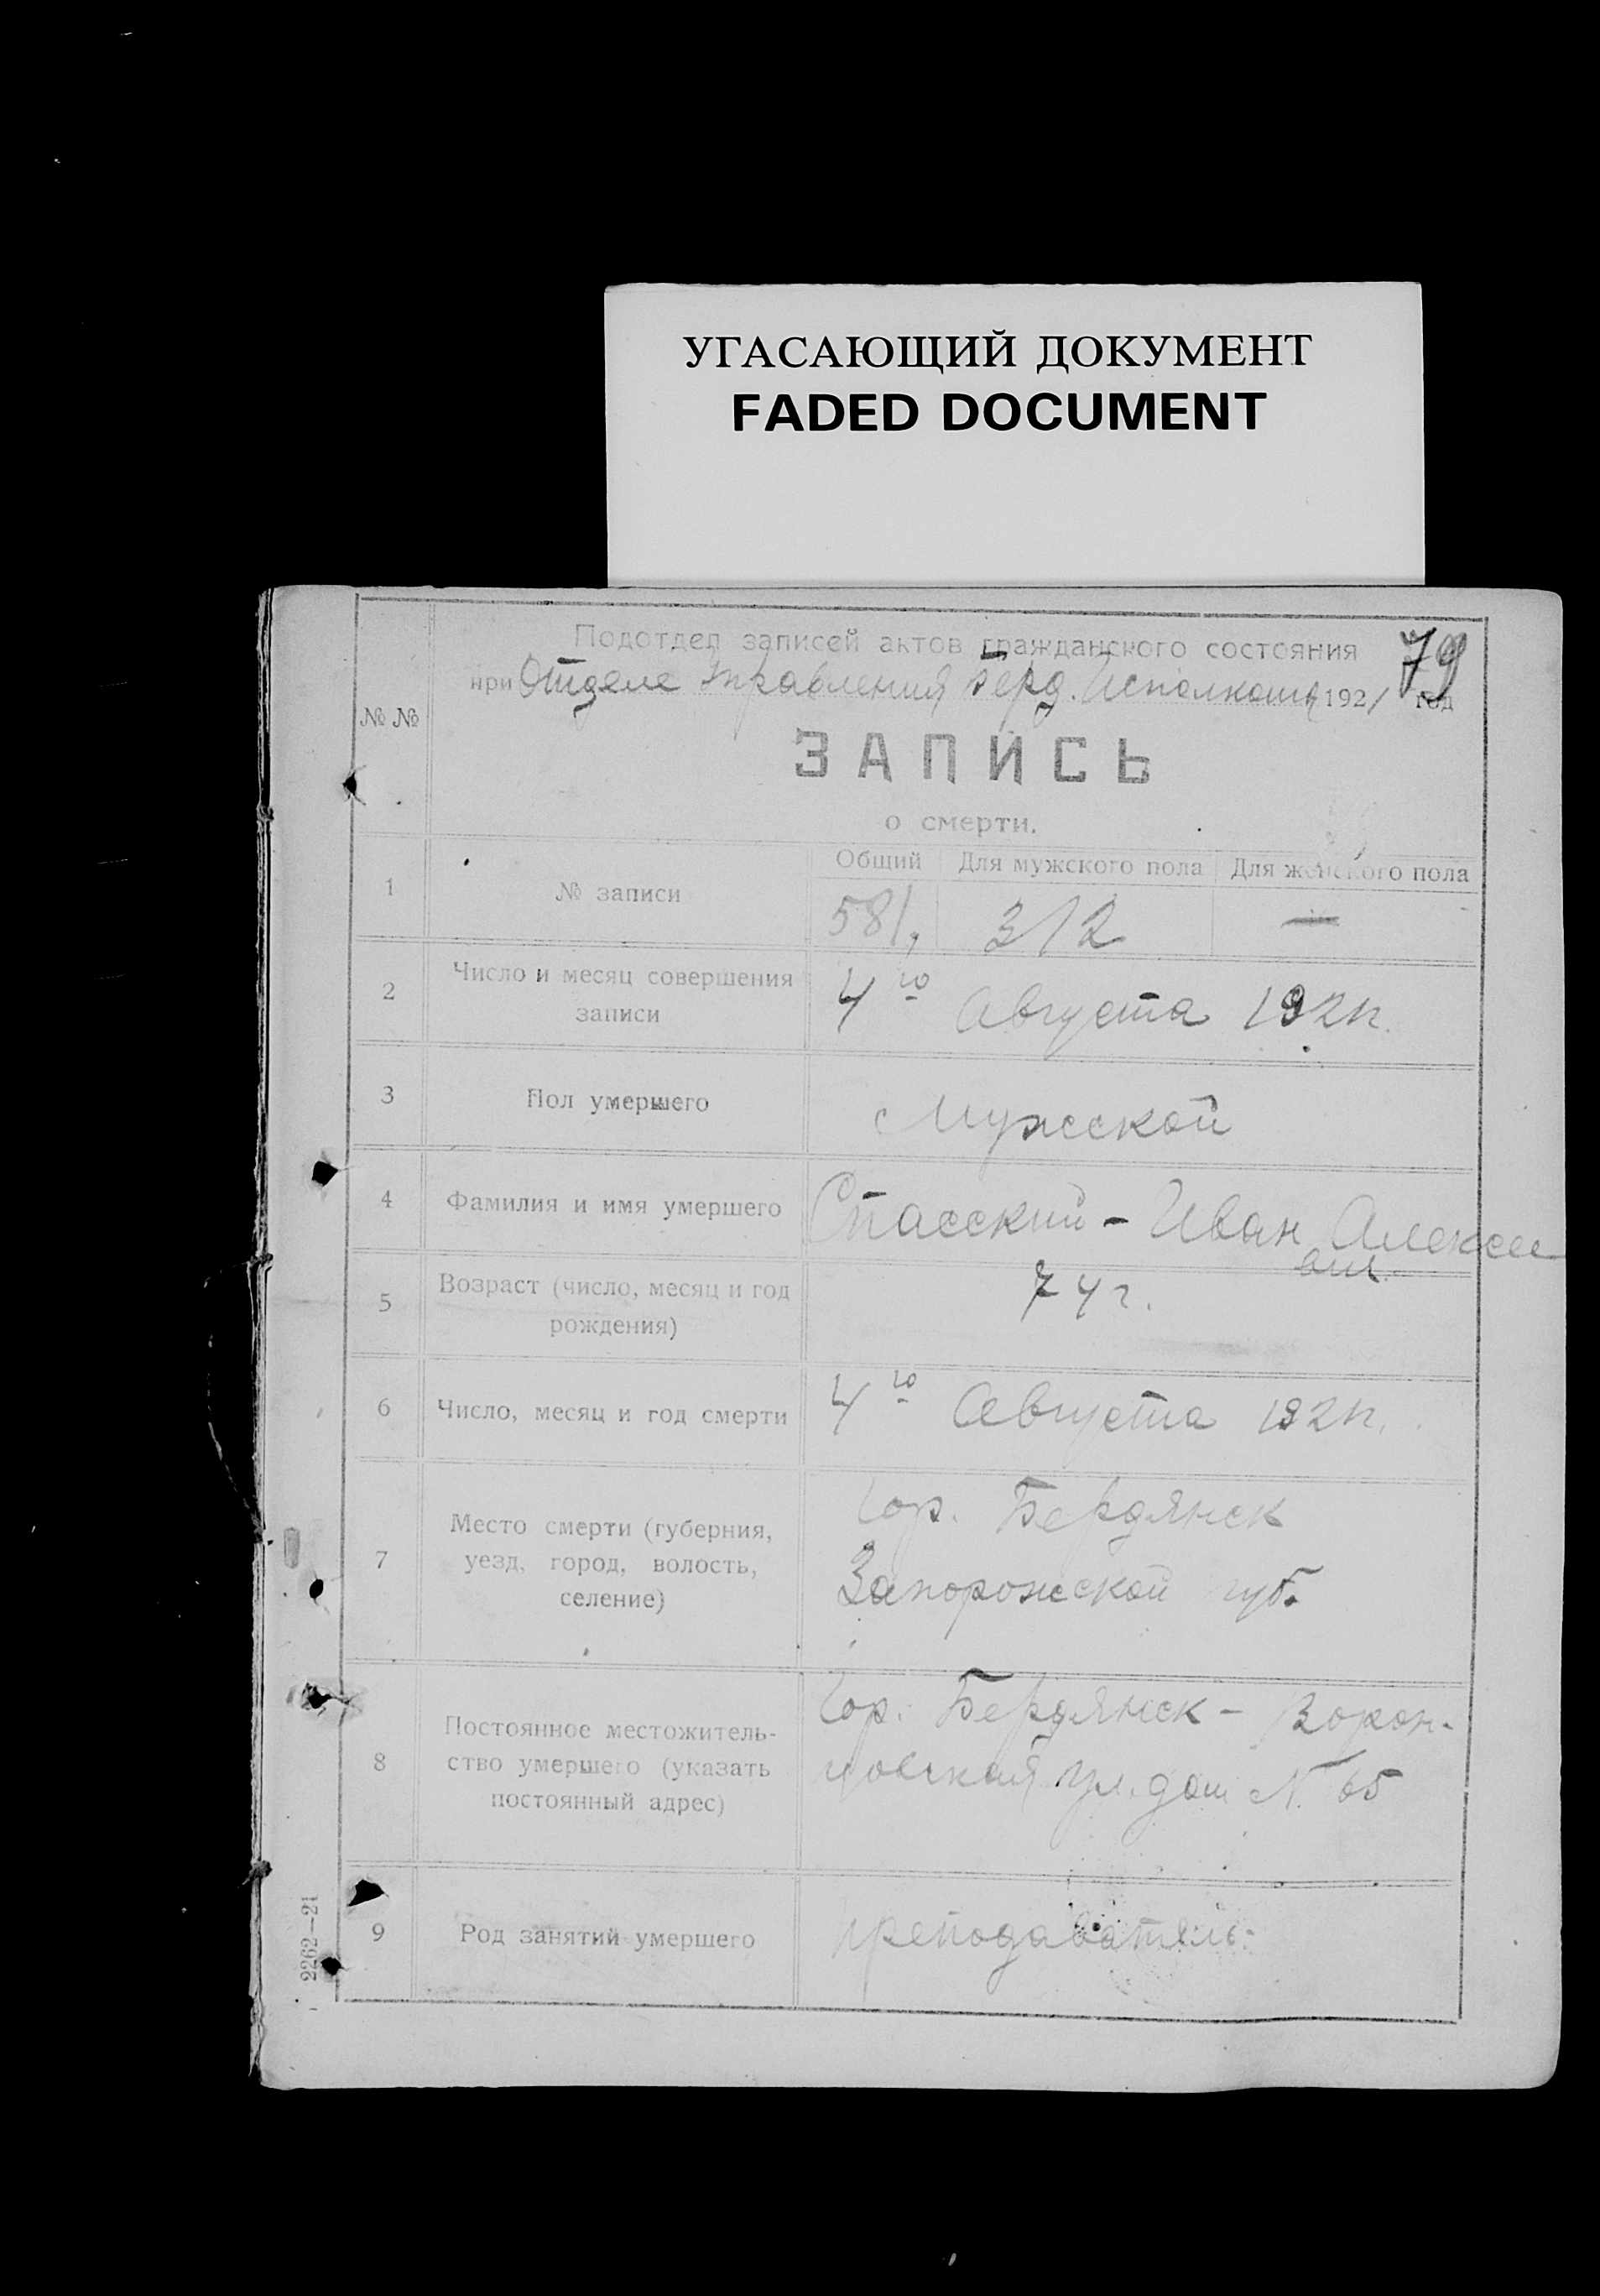 УГАСАЮЩИЙ ДОКУМЕНТ
FADED DOCUMENT
79
Подотдел записей актов гражданского состояния
при Отделе Управления Берд. Исполкома 1921 год
№ №
ЗАПИСЬ
о смерти.
Общий Для мужского пола Для женского пола
1 № записи 581, 312 —
2 Число и месяц совершения
записи
4го Августа 1921г.
3 Пол умершего Мужской
4 Фамилия и имя умершего Спасский - Иван Алексее
вич
5 Возраст (число, месяц и год
рождения)
74 г.
6 Число, месяц и год смерти 4го Августа 1921г.
7 Место смерти (губерния,
уезд, город, волость,
селение)
Гор. Бердянск
Запорожской губ.
8 Постоянное местожитель-
ство умершего (указать
постоянный адрес)
Гор. Бердянск - Ворон-
цовская ул. дом № 65
9 Род занятий умершего преподаватель
2262—21